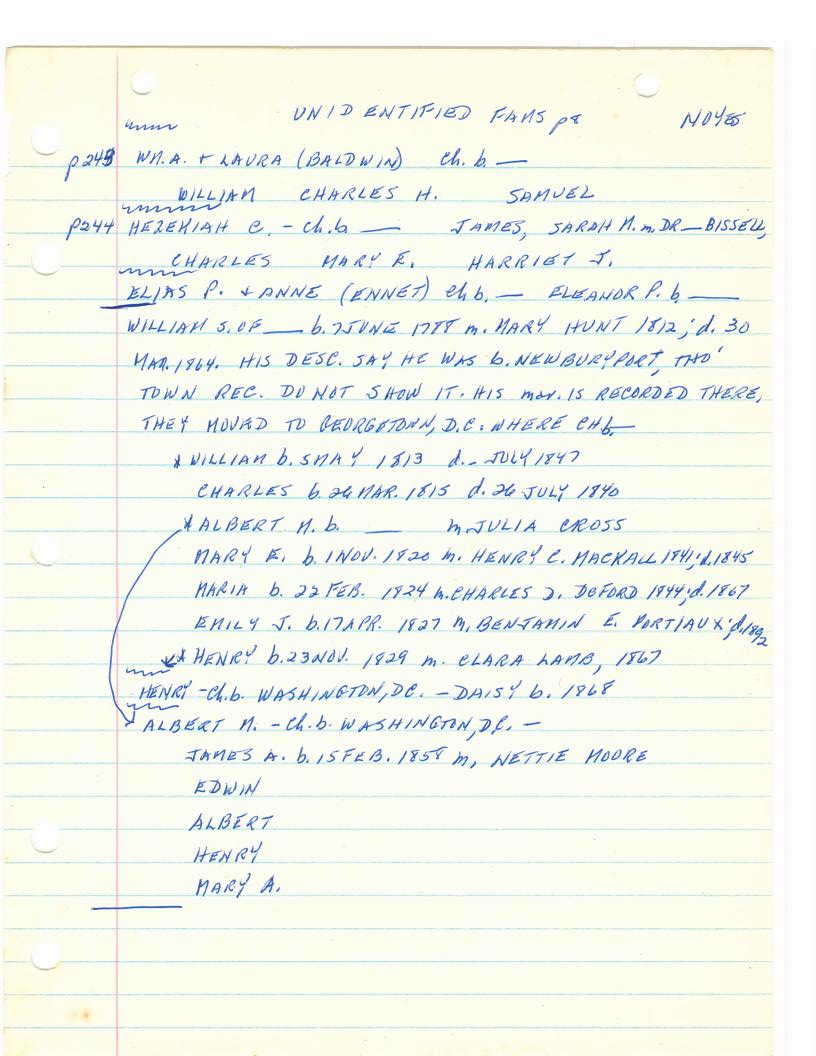 UNIDENTIFIED FAMS p8 NOYES
p243 WM. A. + LAURA (BALDWIN) Ch. b. —
WILLIAM CHARLES H. SAMUEL
p244 HEZEKIAH C. - Ch. b — JAMES, SARAH M. m. DR — BISSELL,
CHARLES MARY E. HARRIET J.
ELIAS P. + ANNE (ENNET) Ch b. — ELEANOR P. b. —
WILLIAM S. OF — b. 7 JUNE 1788 m. MARY HUNT 1812; d. 30
MAR. 1864. HIS DESC. SAY HE WAS b. NEWBURYPORT, THO'
TOWN REC. DO NOT SHOW IT. HIS mar. IS RECORDED THERE,
THEY MOVED TO GEORGETOWN, D.C. WHERE CH b. —
* WILLIAM b. 5 MAY 1813 d. - JULY 1847
CHARLES b. 26 MAR. 1815 d. 26 JULY 1840
* ALBERT M. b. — m. JULIA CROSS
MARY E. b. 1 NOV. 1820 m. HENRY C. MACKALL 1841; d. 1845
MARIA b. 22 FEB. 1824 m. CHARLES D. DEFORD 1844; d. 1867
EMILY J. b. 17 APR. 1827 m. BENJAMIN E. PORTIAUX; d. 1892
* HENRY b. 23 NOV. 1829 m. CLARA LAMB, 1867
HENRY - Ch. b. WASHINGTON, DC. - DAISY b. 1868
ALBERT M. - Ch. b. WASHINGTON, D.C. -
JAMES A. b. 15 FEB. 1858 m, NETTIE MOORE
EDWIN
ALBERT
HENRY
MARY A.